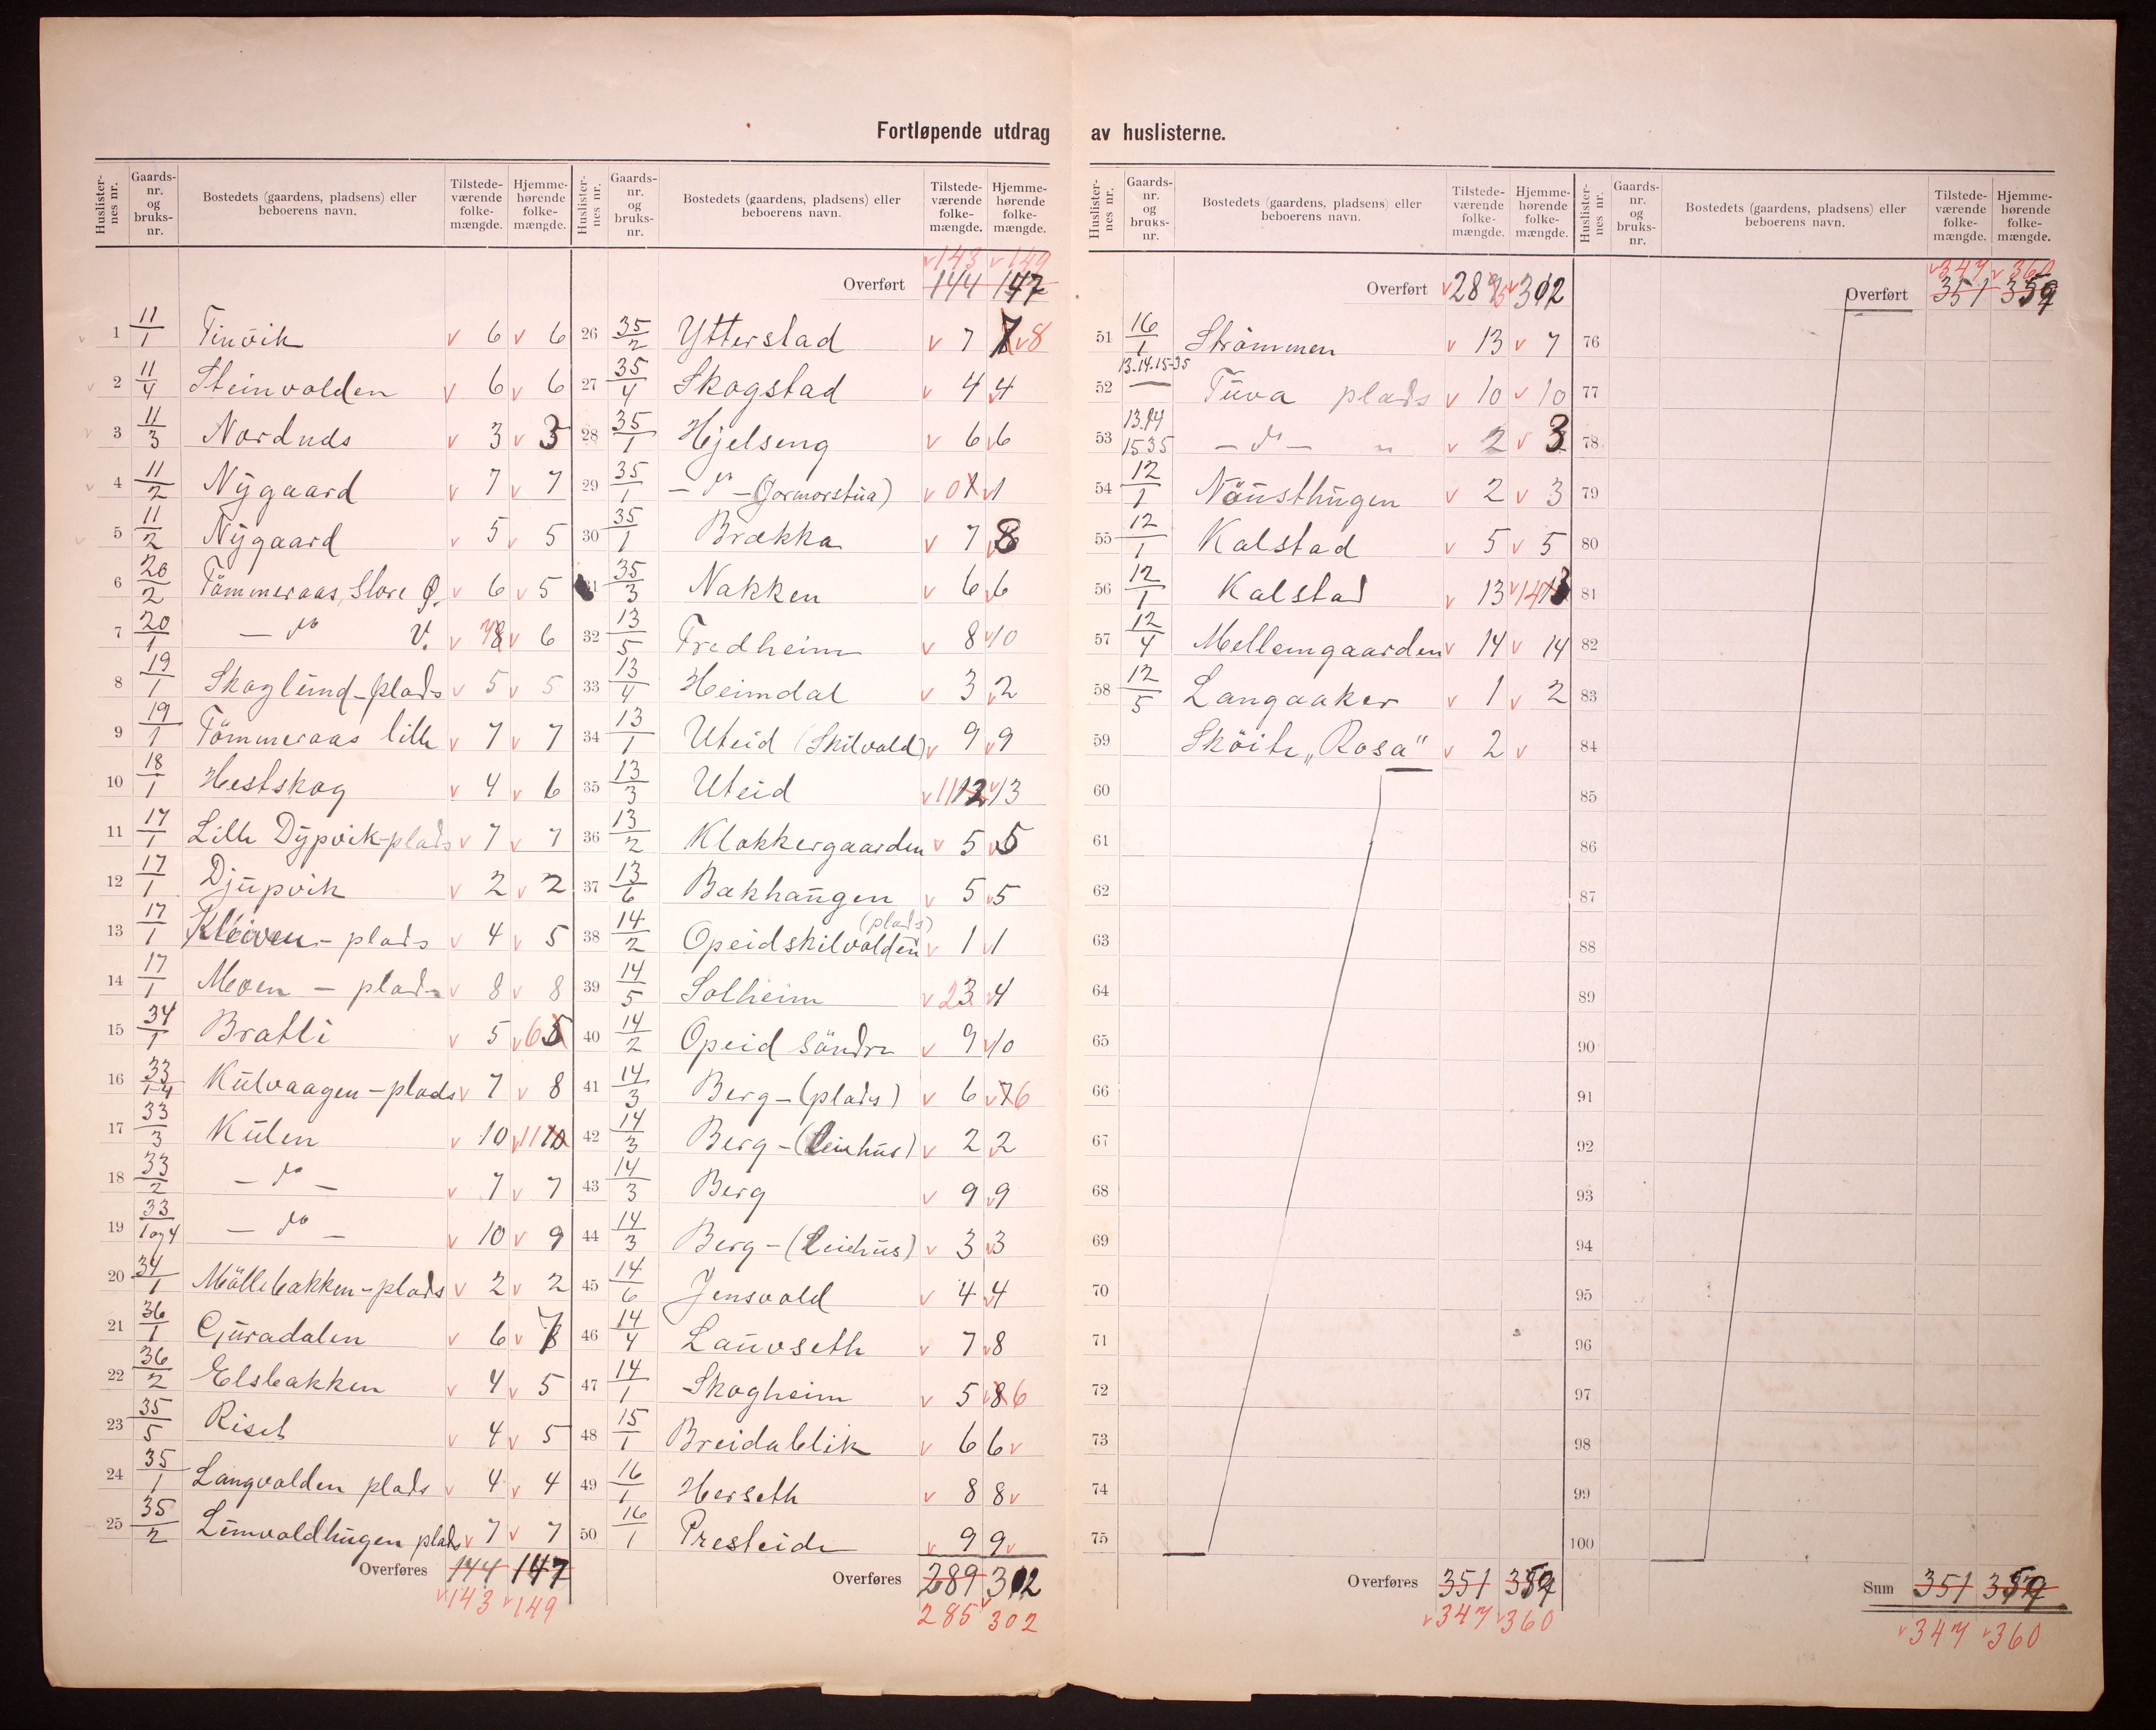 Fortløpende utdrag av huslisterne.
Huslisternes nr. Gaards-nr. og bruks-nr. Bostedets (gaardens, pladsens) eller beboerens navn. Tilstede-værende folke-mængde. Hjemme-hørende folke-mængde.
1 11/1 Tinvik 6 6
2 11/4 Steinvolden 6 6
3 11/3 Nordnds 3 3
4 11/2 Nygaard 7 7
5 11/2 Nygaard 5 5
6 20/2 Tömmeraas, Store Ø. 6 5
7 20/1 — do V. 8 6
8 19/1 Skoglund-plads 5 5
9 19/1 Tömmeraas lille 7 7
10 18/1 Hestskog 4 6
11 17/1 Lille Dypvik-plads 7 7
12 17/1 Djupvik 2 2
13 17/1 Kleiven - plads 4 5
14 17/1 Moen - plads 8 8
15 34/1 Bratli 5 6 5
16 33/1-4 Kulvaagen - plads 7 8
17 33/3 Kulen 10 11 10
18 33/2 - do - 7 7
19 33/1 og 4 - do - 10 9
20 34/1 Möllebakken - plads 2 2
21 36/1 Gjuradalen 6 7
22 36/2 Elsbakken 4 5
23 35/5 Riset 4 5
24 35/1 Langvolden plads 4 4
25 35/2 Lunvoldhugen plads 7 7
Overføres 144 147
143 149
Huslisternes nr. Gaards-nr. og bruks-nr. Bostedets (gaardens, pladsens) eller beboerens navn. Tilstede-værende folke-mængde. Hjemme-hørende folke-mængde.
143 149
Overført 144 147
26 35/2 Ytterstad 7 7 8
27 35/4 Skogstad 4 4
28 35/1 Hjelseng 6 6
29 35/1 - do - (Gormorstua) 0 1 1
30 35/1 Brækka 7 8
31 35/3 Nakken 6 6
32 13/5 Fredheim 8 10
33 13/4 Heimdal 3 2
34 13/1 Uteid (Skilvold) 9 9
35 13/3 Uteid 11 12 13
36 13/2 Klokkergaarden 5 5
37 13/6 Bakhaugen 5 5
38 14/2 Opeidskilvolden (plads) 1 1
39 14/5 Solheim 2 3 4
40 14/2 Opeid söndre 9 10
41 14/3 Berg - (plads) 6 7 6
42 14/3 Berg - (Leiehus) 2 2
43 14/3 Berg 9 9
44 14/3 Berg - (Leiehus) 3 3
45 14/6 Jensvold 4 4
46 14/4 Lauvseth 7 8
47 14/1 Skogheim 5 8 6
48 15/1 Breidablik 6 6
49 16/1 Herseth 8 8
50 16/1 Presteide 9 9
Overføres 289 302
285 302
Huslisternes nr. Gaards-nr. og bruks-nr. Bostedets (gaardens, pladsens) eller beboerens navn. Tilstede-værende folke-mængde. Hjemme-hørende folke-mængde.
Overført 285 302
51 16/1 Strömmen 13 7
52 13-14-15-35 Tuva plads 10 10
53 13.14 15 35 - do - " 2 3
54 12/1 Nausthugen 2 3
55 12/1 Kalstad 5 5
56 12/1 Kalstad 13 14 13
57 12/4 Mellemgaarden 14 14
58 12/5 Langaaker 1 2
59 Sköite „Rosa" 2
60
61
62
63
64
65
66
67
68
69
70
71
72
73
74
75
Overføres 351 359
347 360
Huslisternes nr. Gaards-nr. og bruks-nr. Bostedets (gaardens, pladsens) eller beboerens navn. Tilstede-værende folke-mængde. Hjemme-hørende folke-mængde.
347 360
Overført 351 359
76
77
78
79
80
81
82
83
84
85
86
87
88
89
90
91
92
93
94
95
96
97
98
99
100
Sum 351 359
347 360